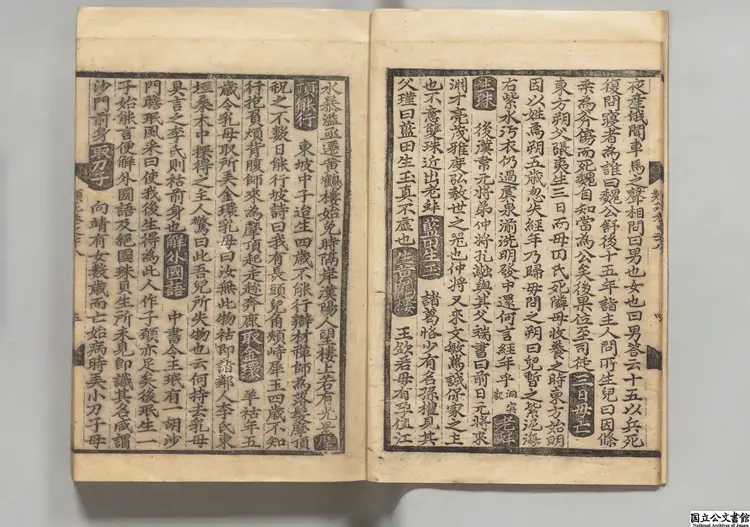 夜產俄聞車馬之聲相問曰男也女也曰男答云十五以兵死
復問寢者為誰曰魏公舒後十五年詣主人問所生兒曰因條
桑為斧傷而死魏自知當為公矣後果位至司徒 三日母亡
東方朔父張夷生三日而母田氏死隣母收養之時東方始明
因以姓焉朔五歲忽失經年乃歸母問之朔曰兒暫之紫泥海
有紫水汚衣仍過虞泉湔洗朝發中還何言經年乎 洞冥記 老蚌
生珠 後漢韋元將弟仲將孔融與其父端書曰前日元將來
淵才亮茂雅度弘毅世之器也仲將又來文敏篤誠保家之主
也不意雙珠近出老蚌 藍田生玉 諸葛恪少有名孫權見其
父瑾曰藍田生玉真不虛也 生黃鶴樓 王欽若母有孕值江
水暴溢亟遷黃鶴樓始免時隔岸漢陽人望樓上若有光景 摩
頂能行 東坡中子迨生四歲不能行辯材禪師為落髮摩頂
祝之不數日能行坡詩曰我有長頭兒角頰峙犀玉四歲不知
行抱負煩背腹師來為摩頂起走趁奔鹿 取金環 羊祜年五
歲令乳母取所弄金環乳母曰汝無此物祜即詣鄰人李氏東
垣桑木中探得之主人驚曰此吾兒所失物也云何持去乳母
具言之李氏則祜前身也 解外國語 中書令王珉有一胡沙
門瞻珉風采曰使我後生得為此人作子願亦足矣後珉生一
子始能言便解外國語及絕國珠貝生所未見即識其名咸謂
沙門前身 取刀子 向靖有女數歲而亡始病時弄小刀子母
国立公文書館
National Archives of Japan